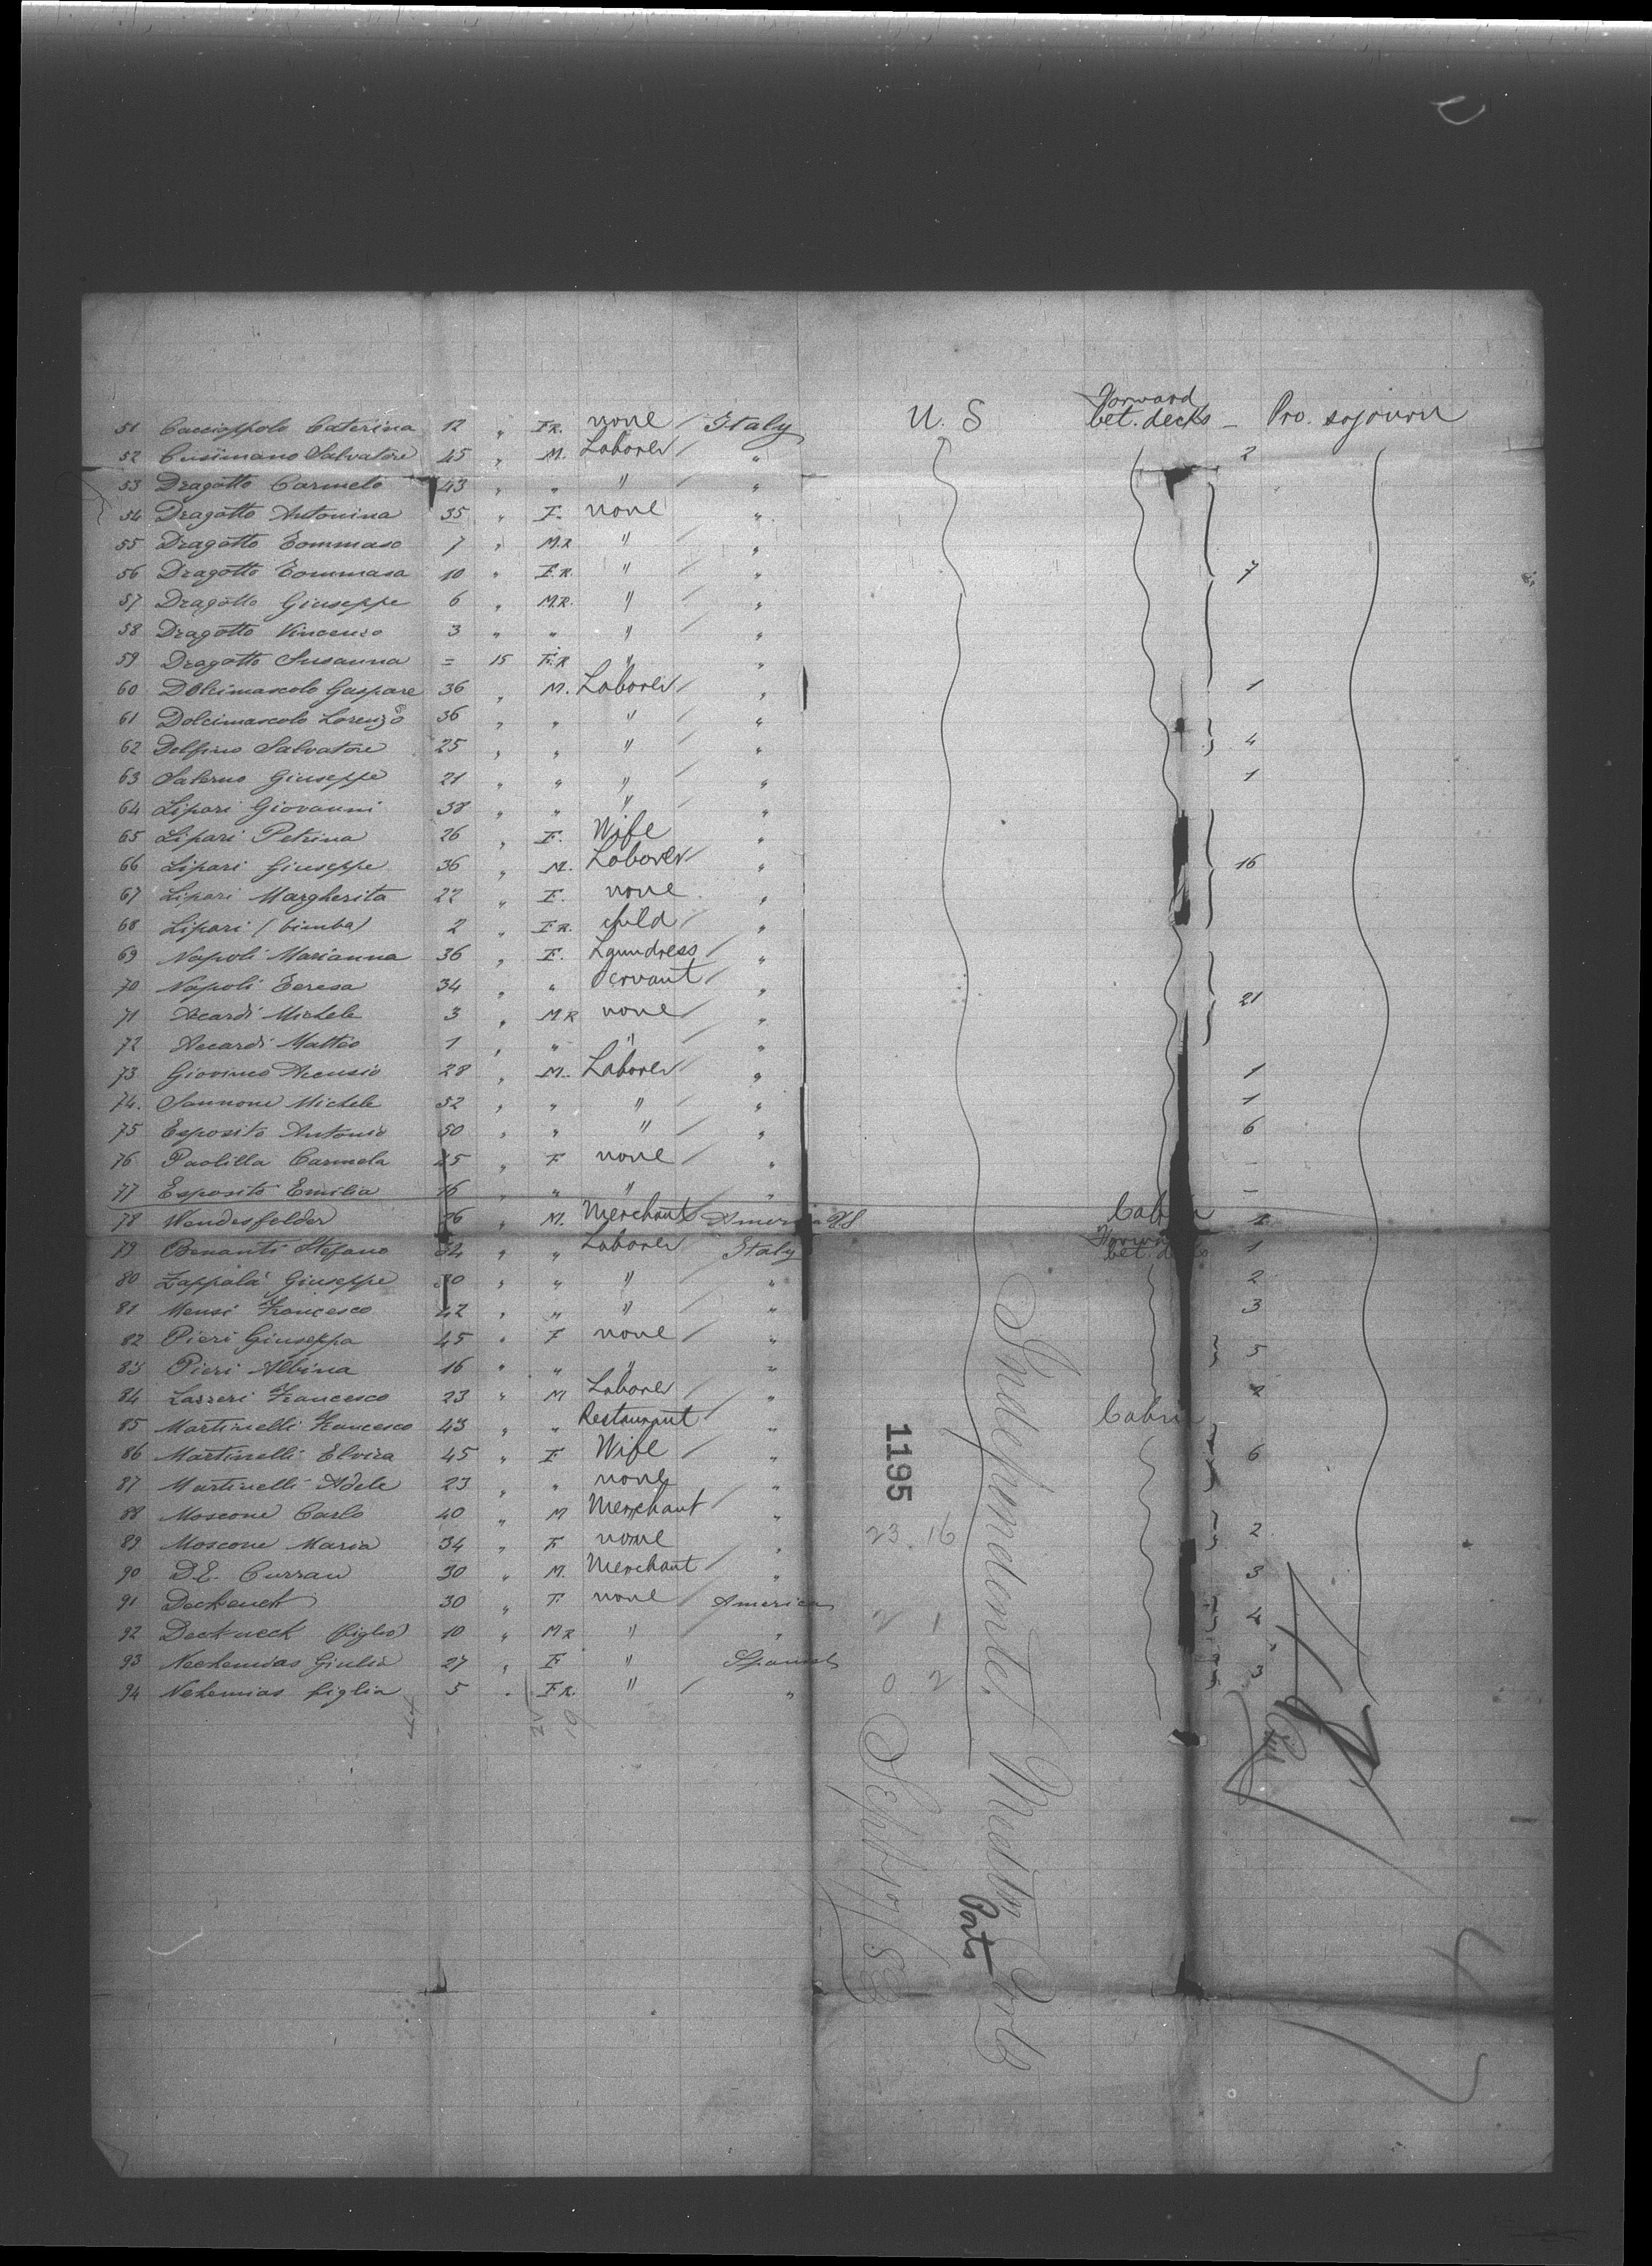 U. S Forward bet. decks - Pro. sojourn
51 Caccioppolo Caterina 12 " F R. none / Italy
52 Cusimano Salvatore 45 " M. Laborer / " 2
53 Dragotto Carmelo 43 " " " / "
54 Dragotto Antonina 35 " F. none "
55 Dragotto Tommaso 7 " M.R " / "
56 Dragotto Tommasa 10 " F.R. " / " 7
57 Dragotto Giuseppe 6 " M.R. " / "
58 Dragotto Vincenzo 3 " " " / "
59 Dragotto Susanna = 15 F.R " "
60 Dolcimascolo Gaspare 36 " M. Laborer / " 1
61 Dolcimascolo Lorenzo 36 " " " / "
62 Delfino Salvatore 25 " " " / " 4
63 Salerno Giuseppe 21 " " " / " 1
64 Lipari Giovanni 38 " " " / "
65 Lipari Petrina 26 " F. Wife "
66 Lipari Giuseppe 36 " M. Laborer / " 16
67 Lipari Margherita 22 " F. none "
68 Lipari (bimba) 2 " F R. child / "
69 Napoli Marianna 36 " F. Laundress / "
70 Napoli Teresa 34 " " Servant / " 21
71 Accardi Michele 3 " M R none / "
72 Accardi Matteo 1 " " " / "
73 Giovinco Accusio 28 " M. Laborer / " 1
74. Sannone Michele 52 " " " / " 1
75 Esposito Antonio 50 " " " / " 6
76 Paolilla Carmela 45 " F none / " -
77 Esposito Emilia 16 " " " " -
78 Wendesfelder 26 " M. Merchant / America US Cabin
79 Benanti Stefano " " Laborer Italy Forward bet. decks 1
80 Zappalá Giuseppe " " " / " 2
81 Mensi Francesco 42 " " " / " 3
82 Pieri Giuseppa 45 " F none / " 5
83 Pieri Albina 16 " " " "
84 Lazzeri Francesco 23 " M Laborer / " 2
85 Martinelli Francesco 43 " " Restaurant / " Cabin
86 Martinelli Elvira 45 " F Wife / " 6
87 Martinelli Adele 23 " " none "
88 Moscone Carlo 40 " M Merchant / " 2
89 Moscone Maria 34 " F none "
90 D.E. Curran 30 " M. Merchant / " 3
91 30 " F none / America 4
92 (figlio) 10 " M R " / "
93 Nechemias Giulia 27 " F " Spanish 3
94 Nehemias figlia 5 " F R. " / "
1195
23 16
2 1
0 2
Independente. Ports
Septbr 7/83